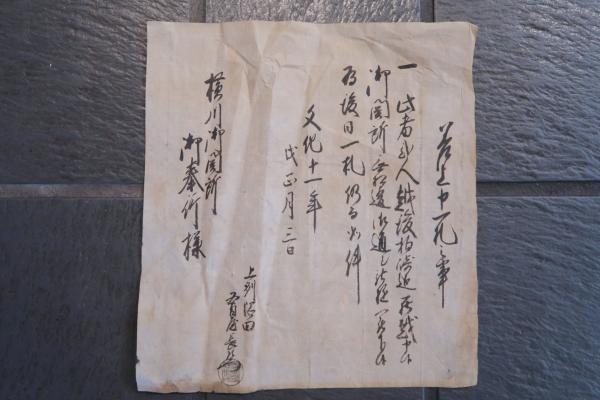 差上申一札之事
一 此者弐人越後柏崎迄罷越申候
御関所無相違御通し被遊可被下候
為後日一札仍而如件
文化十一年
戌正月三日
上州
横川御関所
御奉行様